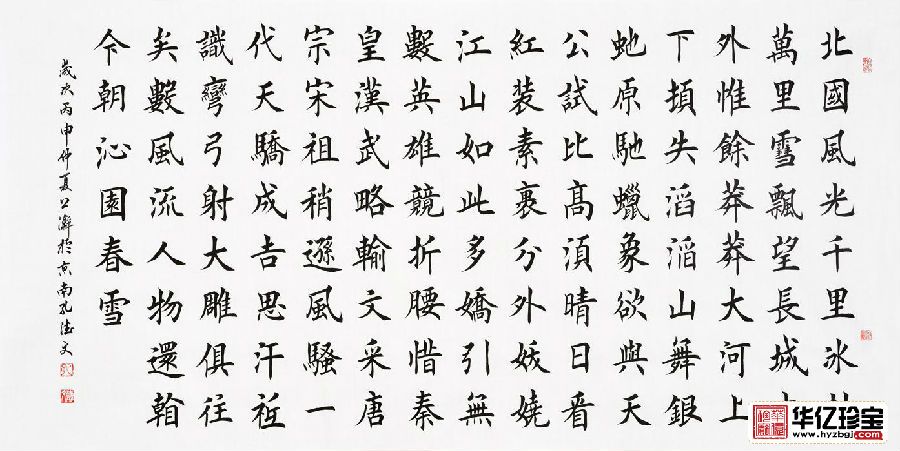 北國風光千里冰
萬里雪飄望長城
外惟餘莽莽大河上
下頓失滔滔山舞銀
虵原馳蠟象欲與天
公試比高須晴日看
紅裝素裹分外妖嬈
江山如此多嬌引無
數英雄競折腰惜秦
皇漢武略輸文采唐
宗宋祖稍遜風騷一
代天驕成吉思汗祗
識彎弓射大雕俱往
矣數風流人物還看
今朝沁園春雪
歲次丙申仲夏於京南孔德文
华亿珍宝
www.hyzbgj.com